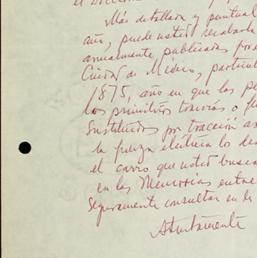 el
Más detallada y puntual
año, puede usted recabarla
anualmente publicadas por
Ciudad de México, particular
1875, año en que las
los primitivos tranvías o
sustituidos por tracción
la fuerza eléctrica los
el carro que usted busca
en las Memorias entre
seguramente consultar en la
Atentamente